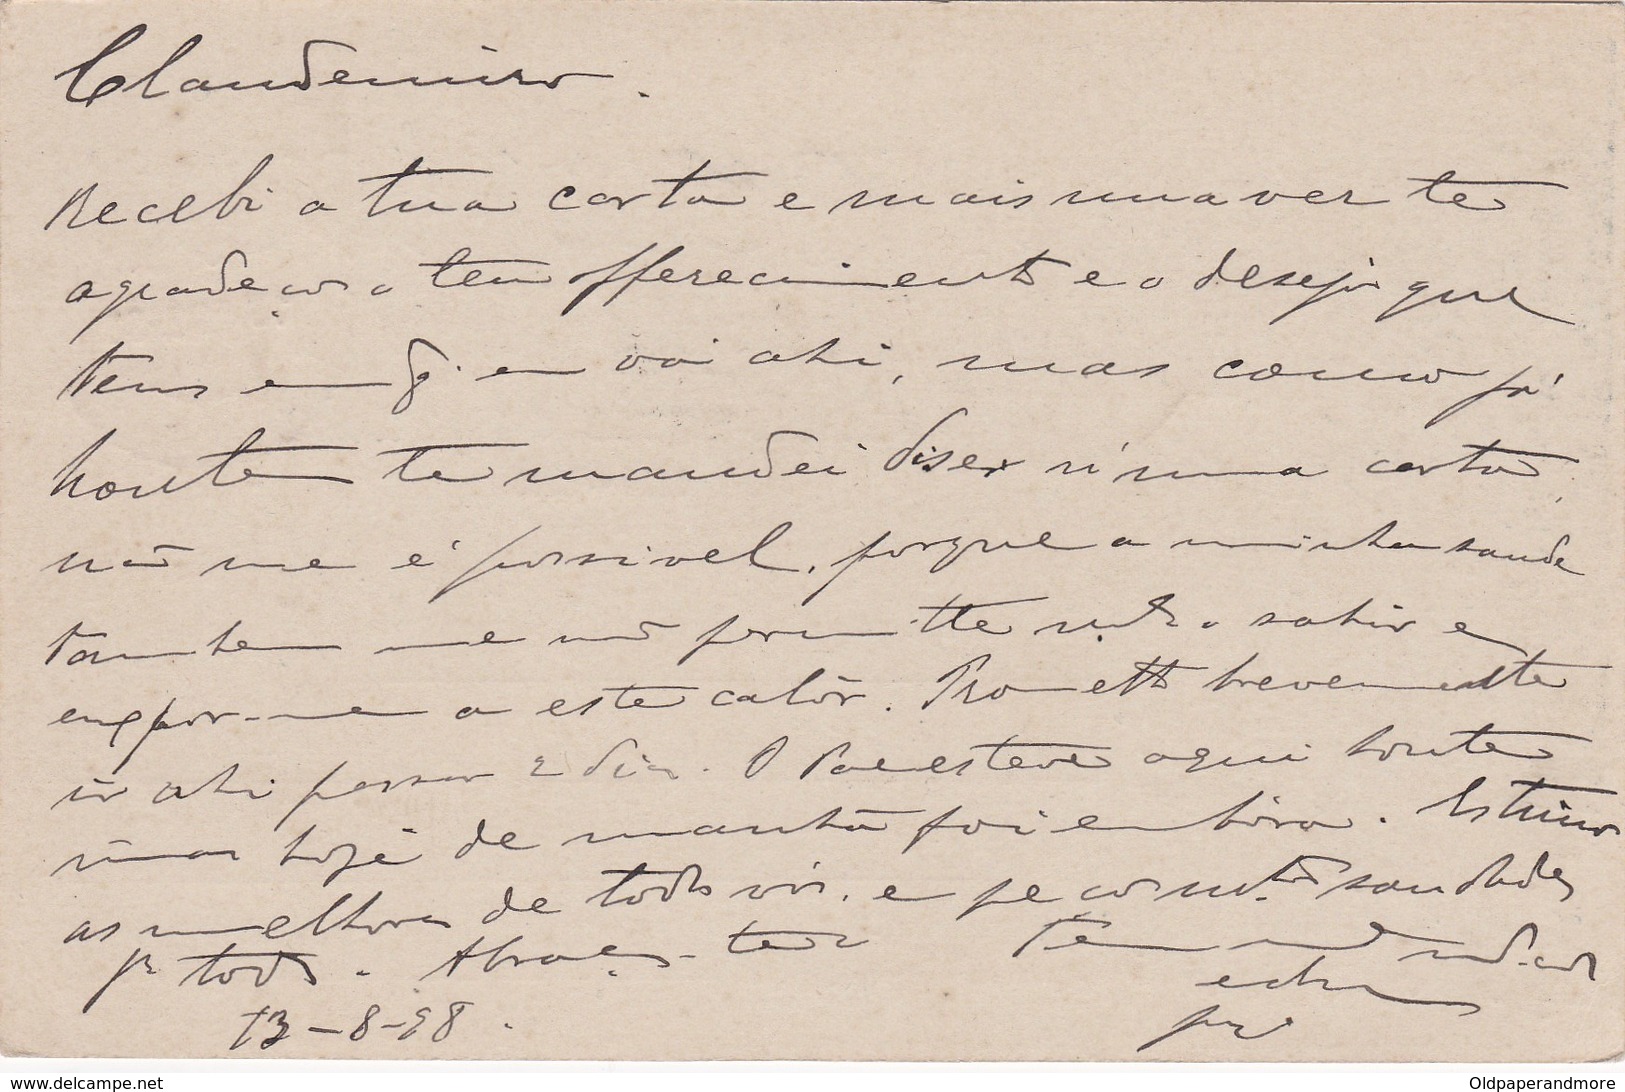 Claudemiro.
Recebi a tua carta e mais uma vez te
agradeço o teu offerecimento e o desejo que
tens em q. eu vá ahi, mas como já
honte te mandei diser n'uma carta,
não me é possivel, porque a minha saude
tambem me não permitte sahir e
expor-me a este calôr. Prometto brevemente
ir ahi passar 2 dias. O Pae esteve aqui honte
mas hoje de manhã foi embóra. Estimo
as melhoras de todos vós, e saudades
pª todos. Abraça-te
13-8-98.
www.delcampe.net
Oldpaperandmore